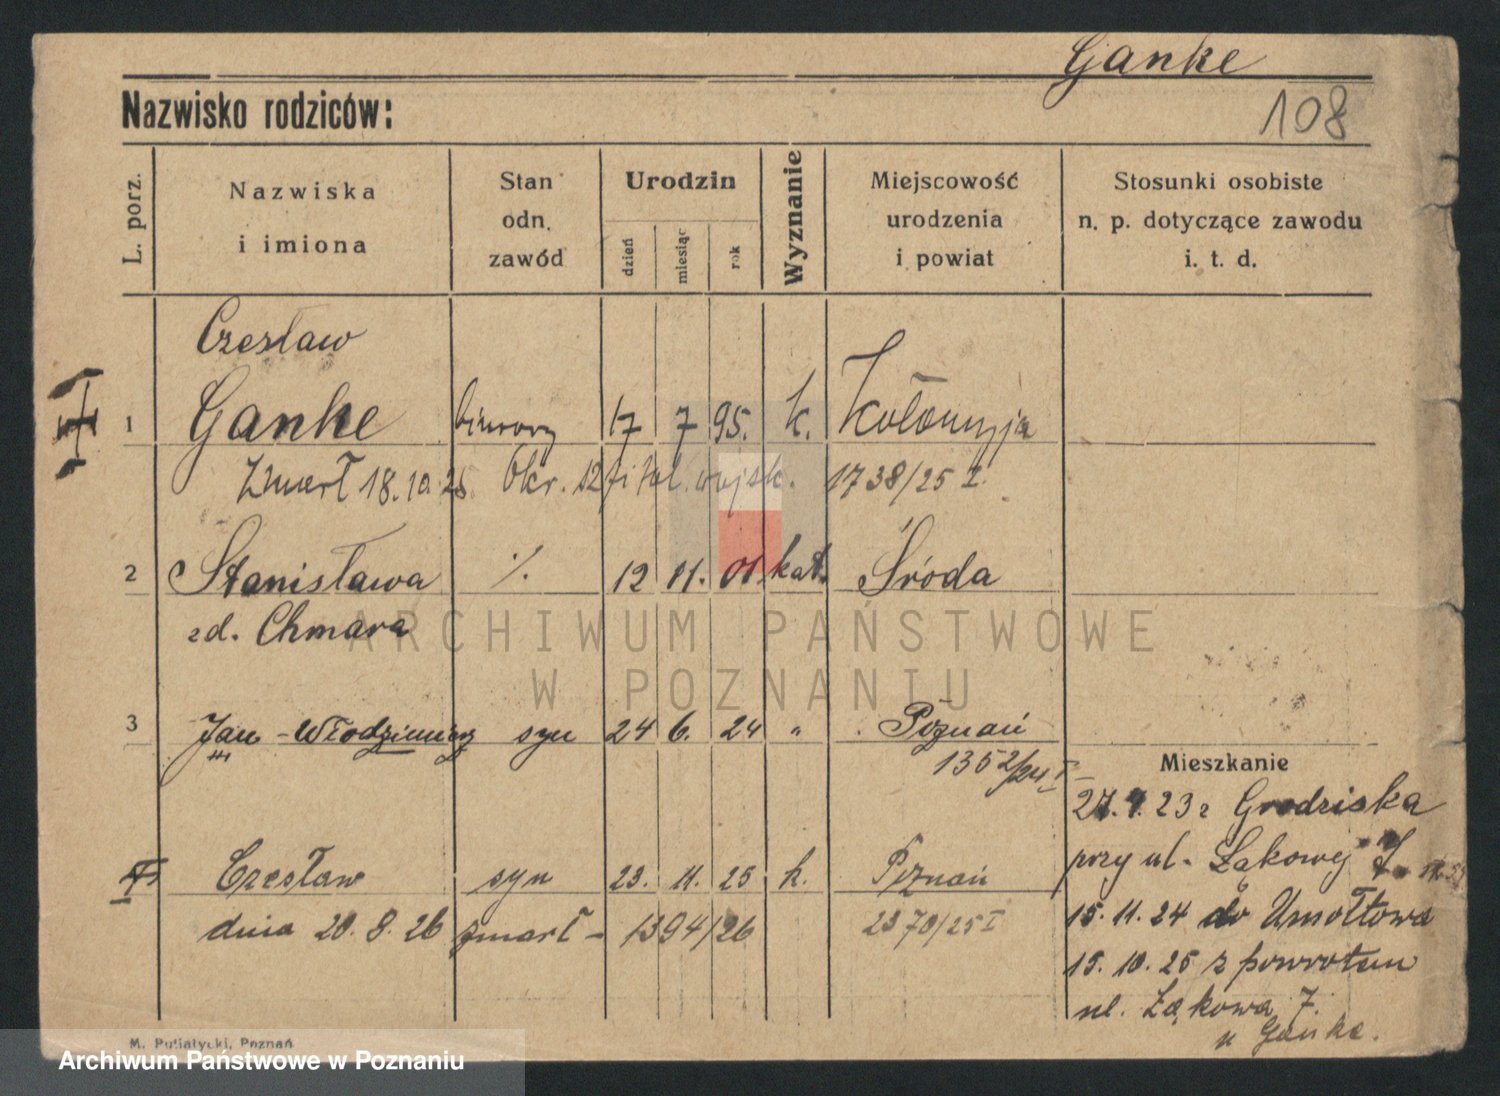 Ganke
108
Nazwisko rodziców:
L. porz.
Nazwiska
i imiona
Stan
odn.
zawód
Urodzin
dzień
miesiąc
rok
Wyznanie
Miejscowość
urodzenia
i powiat
Stosunki osobiste
n. p. dotyczące zawodu
i. t. d.
Czesław
1 Ganke biurowy 17 7 95. k. Kołomyja
Zmarł 18.10.25. Okr. wojsk. 1738/25 I.
2 Stanisława ./. 12 11. 01. kat. Środa
zd. Chmara
3 Jan-Włodzimierz syn 24 6. 24 " Poznań
1352/24 I
Czesław syn 23. 11. 25 k. Poznań
dnia 20. 8. 26 zmarł – 1394/26 2370/25 I
Mieszkanie
23 z Grodziska
przy ul. Łąkowej 7
15. 11. 24 do Umołtowa
15. 10. 25 z powrotem
ul. Łąkowa 7.
u Ganke.
M. Putiatycki, Poznań
ARCHIWUM PAŃSTWOWE
W POZNANIU
Archiwum Państwowe w Poznaniu